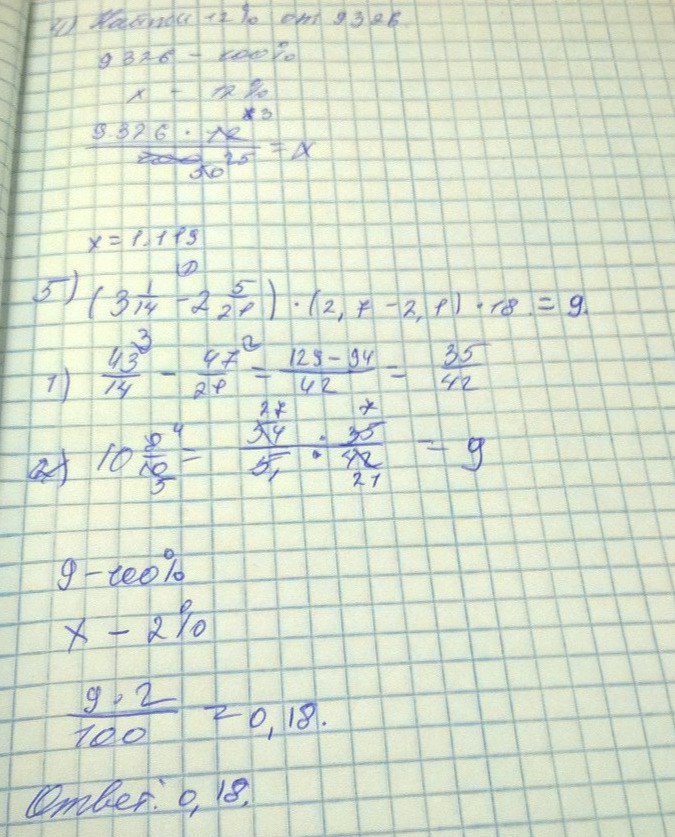 4) Найти 12% от 9326.
9326 – 100%
x – 12%
9326 · 12 3
50 25 = x
x = 1.119
5) (3 1/14 – 2 5/21) · (2,7 – 2,1) · 18 = 9.
1) 43/14 3 – 47/21 2 = 129 – 94/42 = 35/42
2) 10 8/10 4/5 = 54/5 27 · 35/42 7/21 = 9
9 – 100%
x – 2%
9 · 2/100 = 0,18.
Ответ: 0,18.